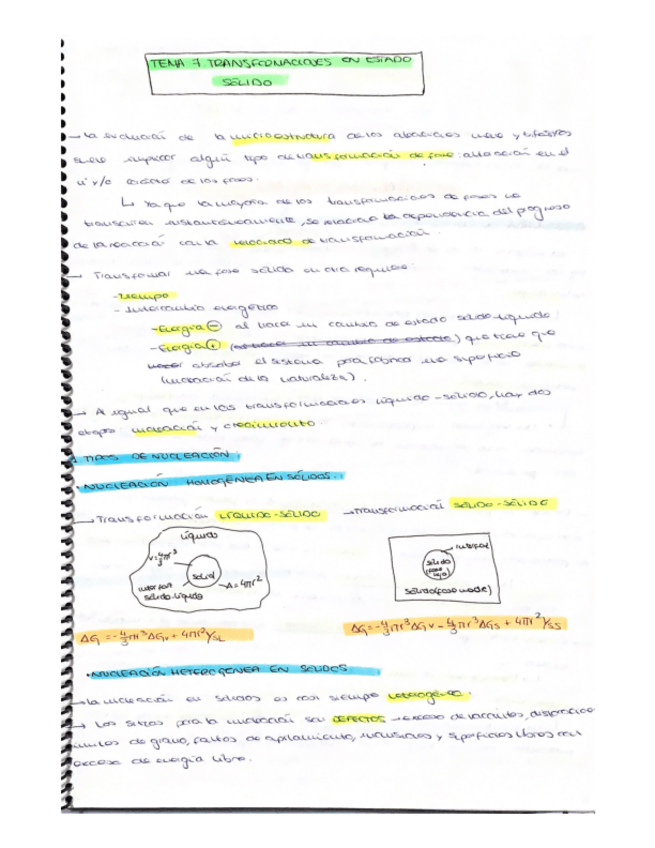 TEMA 7. TRANSFORMACIONES EN ESTADO
SÓLIDO
→ La evolución de la microestructura de las aleaciones
suele implicar algún tipo de transformación de fase: alteración en el
nº y/o carácter de las fases.
↳ Ya que la mayoría de las transformaciones de fases no
transcurren instantáneamente, se relaciona la dependencia del progreso
de la reacción con la velocidad de transformación.
→ Transformar una fase sólida en otra requiere:
- Tiempo
- Intercambio energético
- Energía ⊖ al hacer un cambio de estado sólido-líquido
- Energía ⊕ (al hacer un cambio de estado) que tiene que
hacer absorber el sistema para fabricar una superficie
(nucleación de la naturaleza).
→ Al igual que en las transformaciones líquido-sólido, hay dos
etapas nucleación y crecimiento.
1. TIPOS DE NUCLEACIÓN:
• NUCLEACIÓN HOMOGÉNEA EN SÓLIDOS:
→ Transformación LÍQUIDO-SÓLIDO
→ Transformación SÓLIDO-SÓLIDO
líquido
V=4/3πr³
sólido
interfaz
sólido-líquido
A=4πr²
interfaz
sólido
(fase
hija)
sólido (fase madre)
ΔG = -4/3πr³ΔGv + 4πr²γSL
ΔG = -4/3πr³ΔGv - 4/3πr³ΔGs + 4πr²γSS
• NUCLEACIÓN HETEROGÉNEA EN SÓLIDOS
→ La nucleación en sólidos es casi siempre heterogénea.
→ Los sitios para la nucleación son DEFECTOS → exceso de vacantes, dislocaciones
límites de grano, faltas de apilamiento, inclusiones y superficies libres con
exceso de energía libre.